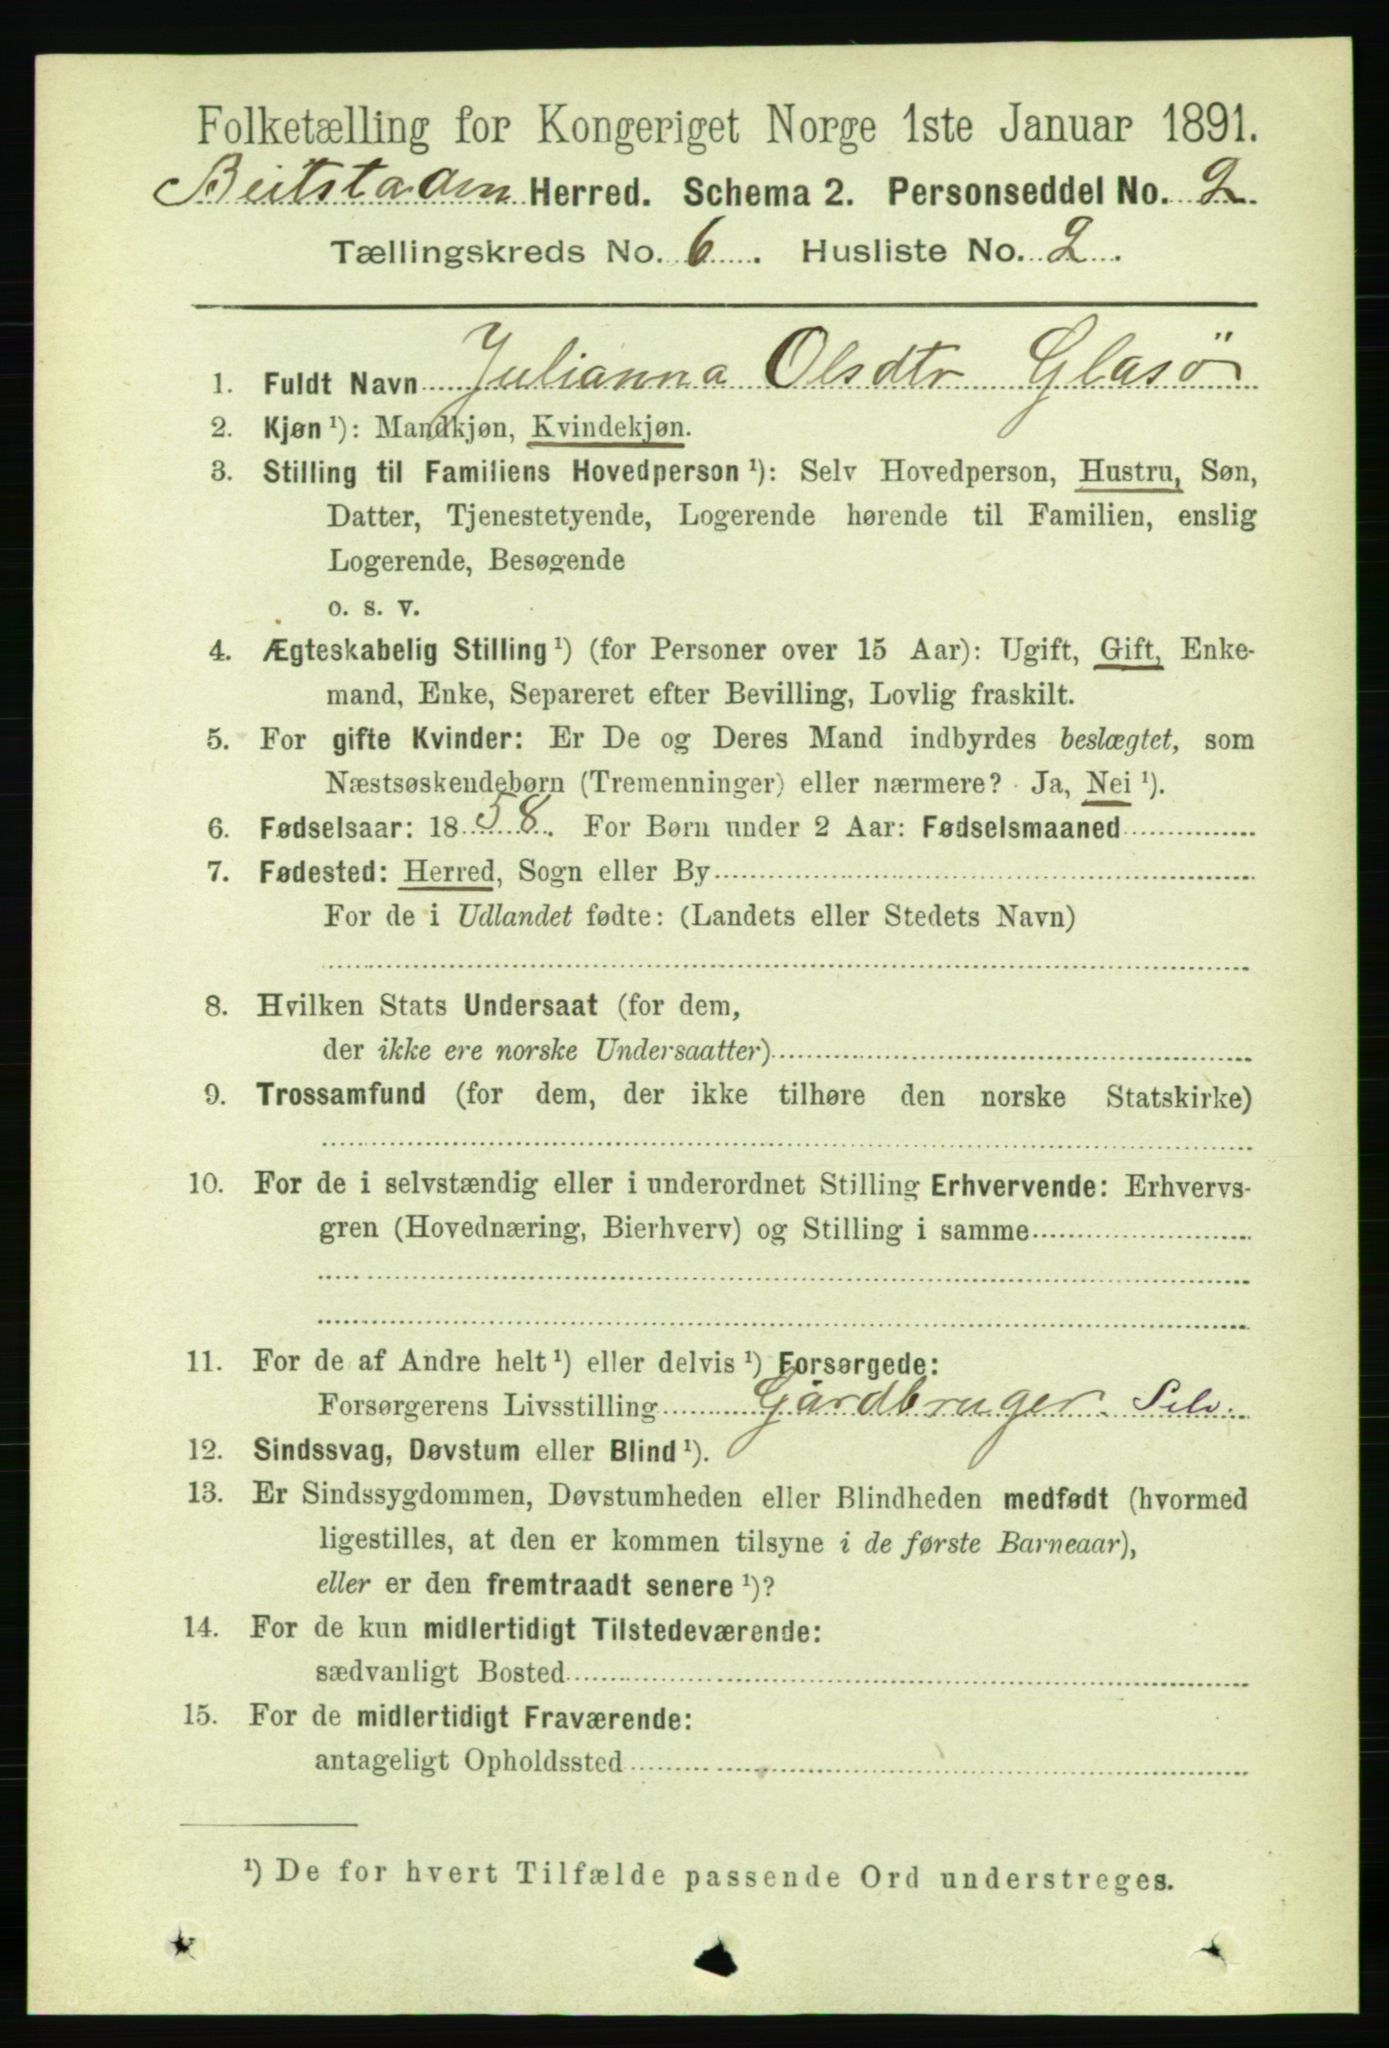 Folketælling for Kongeriget Norge 1ste Januar 1891.
Beitstaden Herred. Schema 2. Personseddel No. 2
Tællingskreds No. 6. Husliste No. 2.
1. Fuldt Navn Julianna Olsdtr Glasö
2. Kjøn ¹): Mandkjøn, Kvindekjøn.
3. Stilling til Familiens Hovedperson ¹): Selv Hovedperson, Hustru, Søn,
Datter, Tjenestetyende, Logerende hørende til Familien, enslig
Logerende, Besøgende
o. s. v.
4. Ægteskabelig Stilling ¹) (for Personer over 15 Aar): Ugift, Gift, Enke-
mand, Enke, Separeret efter Bevilling, Lovlig fraskilt.
5. For gifte Kvinder: Er De og Deres Mand indbyrdes beslægtet, som
Næstsøskendebørn (Tremenninger) eller nærmere? Ja, Nei ¹).
6. Fødselsaar: 1858. For Børn under 2 Aar: Fødselsmaaned
7. Fødested: Herred, Sogn eller By
For de i Udlandet fødte: (Landets eller Stedets Navn)
8. Hvilken Stats Undersaat (for dem,
der ikke ere norske Undersaatter)
9. Trossamfund (for dem, der ikke tilhøre den norske Statskirke)
10. For de i selvstændig eller i underordnet Stilling Erhvervende: Erhvervs-
gren (Hovednæring, Bierhverv) og Stilling i samme
11. For de af Andre helt ¹) eller delvis ¹) Forsørgede:
Forsørgerens Livsstilling Gårdbruger Selv.
12. Sindssvag, Døvstum eller Blind ¹).
13. Er Sindssygdommen, Døvstumheden eller Blindheden medfødt (hvormed
ligestilles, at den er kommen tilsyne i de første Barneaar),
eller er den fremtraadt senere ¹)?
14. For de kun midlertidigt Tilstedeværende:
sædvanligt Bosted
15. For de midlertidigt Fraværende:
antageligt Opholdssted
¹) De for hvert Tilfælde passende Ord understreges.